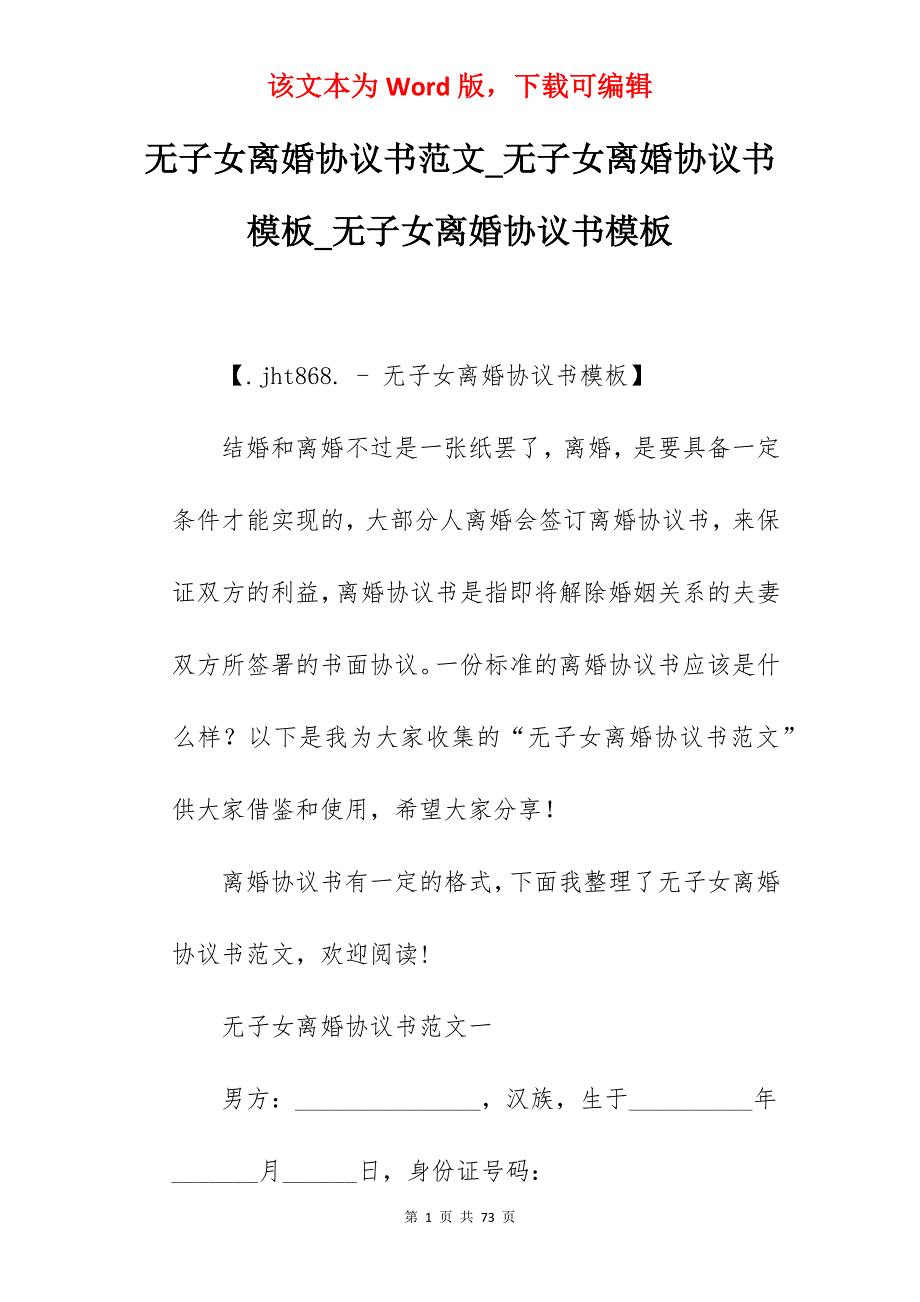 该文本为 Word 版，下载可编辑
无子女离婚协议书范文_无子女离婚协议书
模板_无子女离婚协议书模板
【.jht868. - 无子女离婚协议书模板】
结婚和离婚不过是一张纸罢了，离婚，是要具备一定
条件才能实现的，大部分人离婚会签订离婚协议书，来保
证双方的利益，离婚协议书是指即将解除婚姻关系的夫妻
双方所签署的书面协议。一份标准的离婚协议书应该是什
么样？以下是我为大家收集的“无子女离婚协议书范文”
供大家借鉴和使用，希望大家分享！
离婚协议书有一定的格式，下面我整理了无子女离婚
协议书范文，欢迎阅读!
无子女离婚协议书范文一
男方：_______________，汉族，生于__________年
_______月______日，身份证号码：
第 1 页 共 73 页